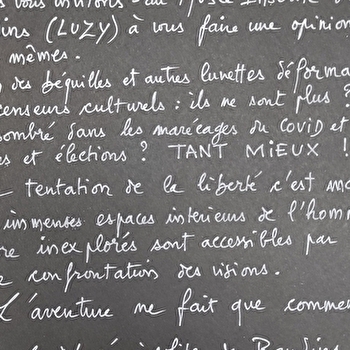 vous invitons
ins (LUZY) à vous faire une opinion
mêmes.
des béquilles et autres lunettes déforma
censeurs culturels : ils ne sont plus ?
ombré dans les marécages du COVID et
es et élections ? TANT MIEUX !
tentation de la liberté c'est
immenses espaces intérieurs de l'hom
re inexplorés sont accessibles par
confrontation des visions.
L'aventure ne fait que commen